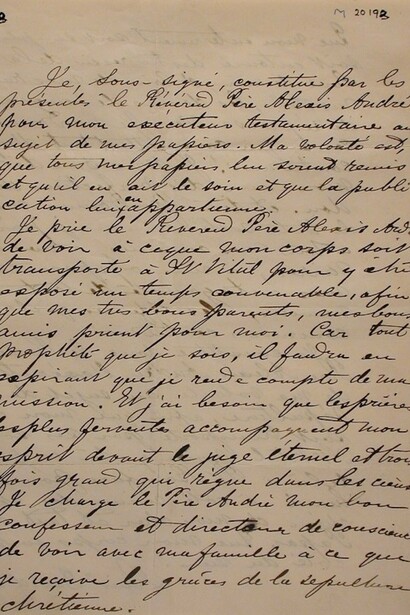 M 2019B
Je, sous-signé, constitue par les
présentes le Révérend Père Alexis André
pour mon exécuteur testamentaire au
sujet de mes papiers. Ma volonté est,
que tous mes papiers lui soient remis
et qu'il en ait le soin et que la publi
cation lui en appartienne.
Je prie le Révérend Père Alexis And
de voir à ce que mon corps soit
transporté à St Vital pour y être
exposé un temps convenable, afin
que mes très bons parents, mes bons
amis prient pour moi. Car tout
Prophète que je sois, il faudra en
expirant que je rende compte de ma
mission. Et j'ai besoin que les prière
les plus ferventes accompagnent mon
esprit devant le juge éternel et troi
fois grand qui règne dans les cieux
Je charge le Père André mon bon
confesseur et directeur de conscienc
de voir avec ma famille à ce que
je reçoive les grâces de la sépulture
chrétienne.